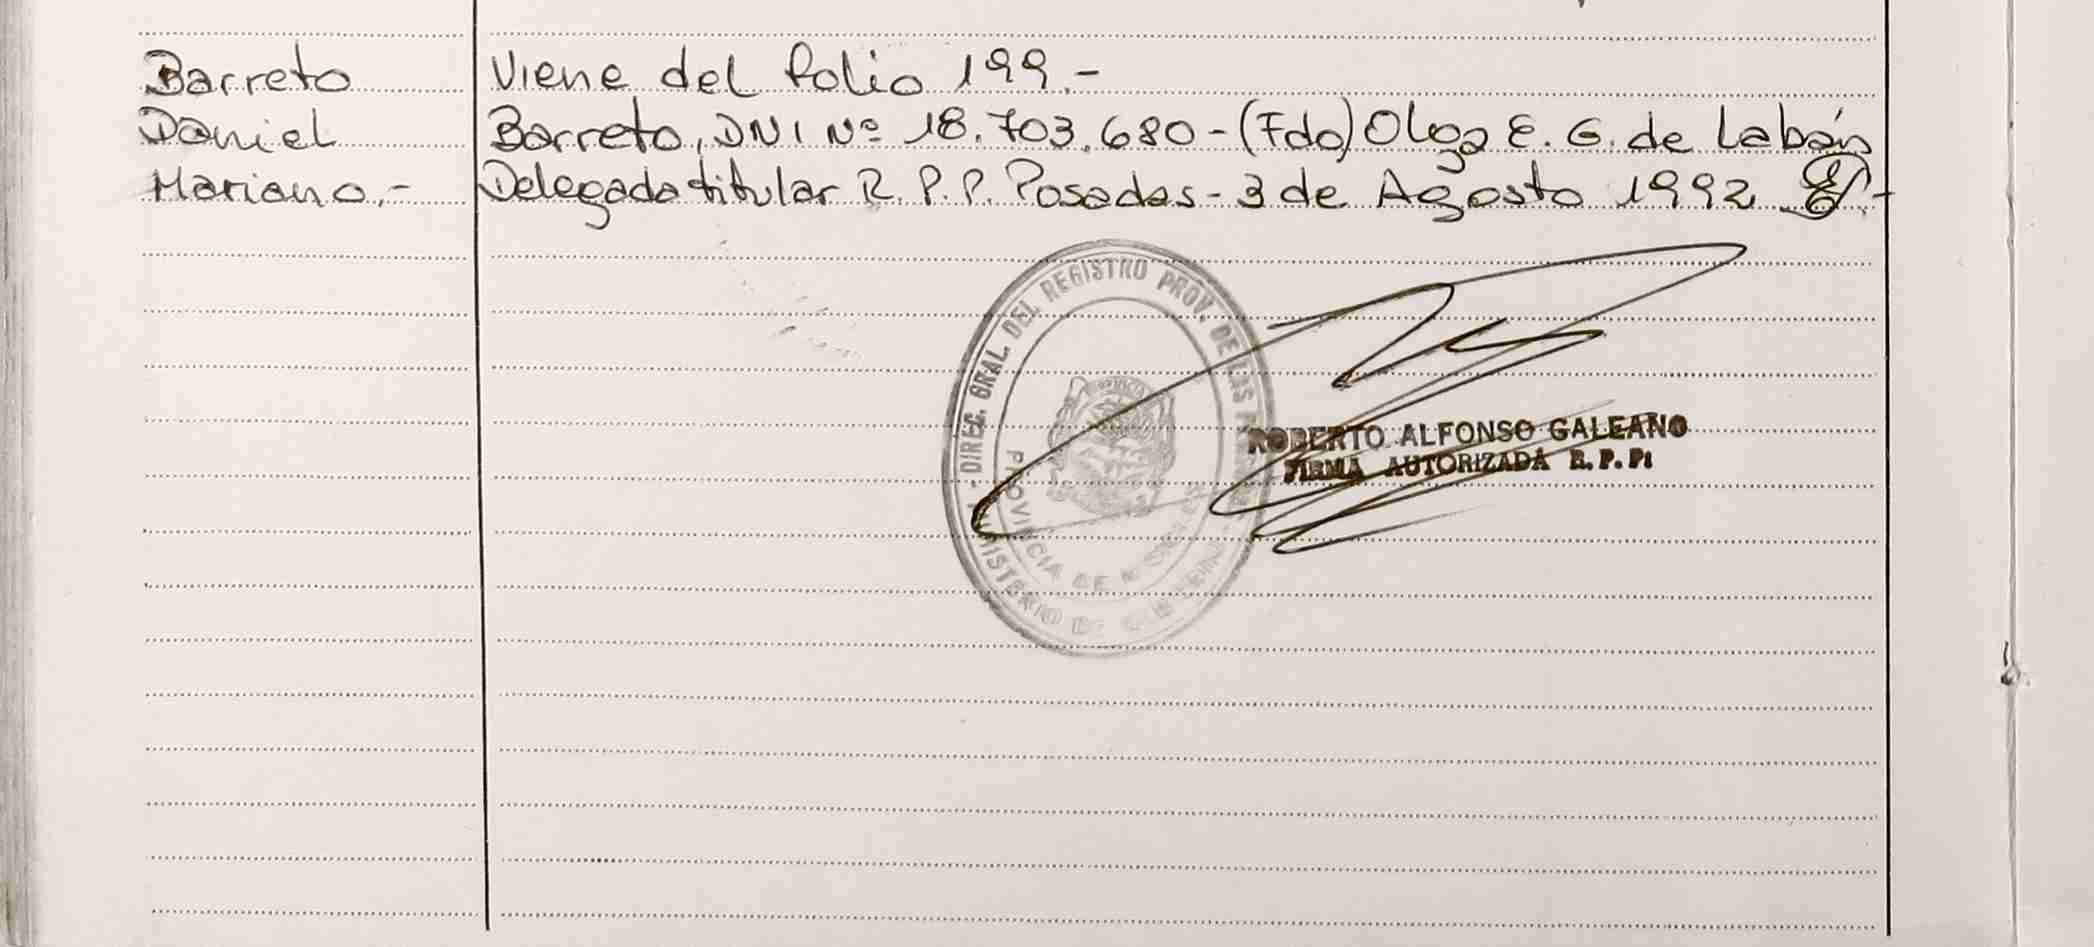 Barreto
Daniel
Mariano.-
Viene del folio 199.-
Barreto, DNI Nº 18.703.680-(Fdo) Olga E. G. de Labán
Delegada titular R.P.P. Posadas-3 de Agosto 1992
- DIREC. GRAL. DEL REGISTRO PROV. DE LAS
MINISTERIO DE
PROVINCIA DE MISIONES
ROBERTO ALFONSO GALEANO
FIRMA AUTORIZADA R.P.P.